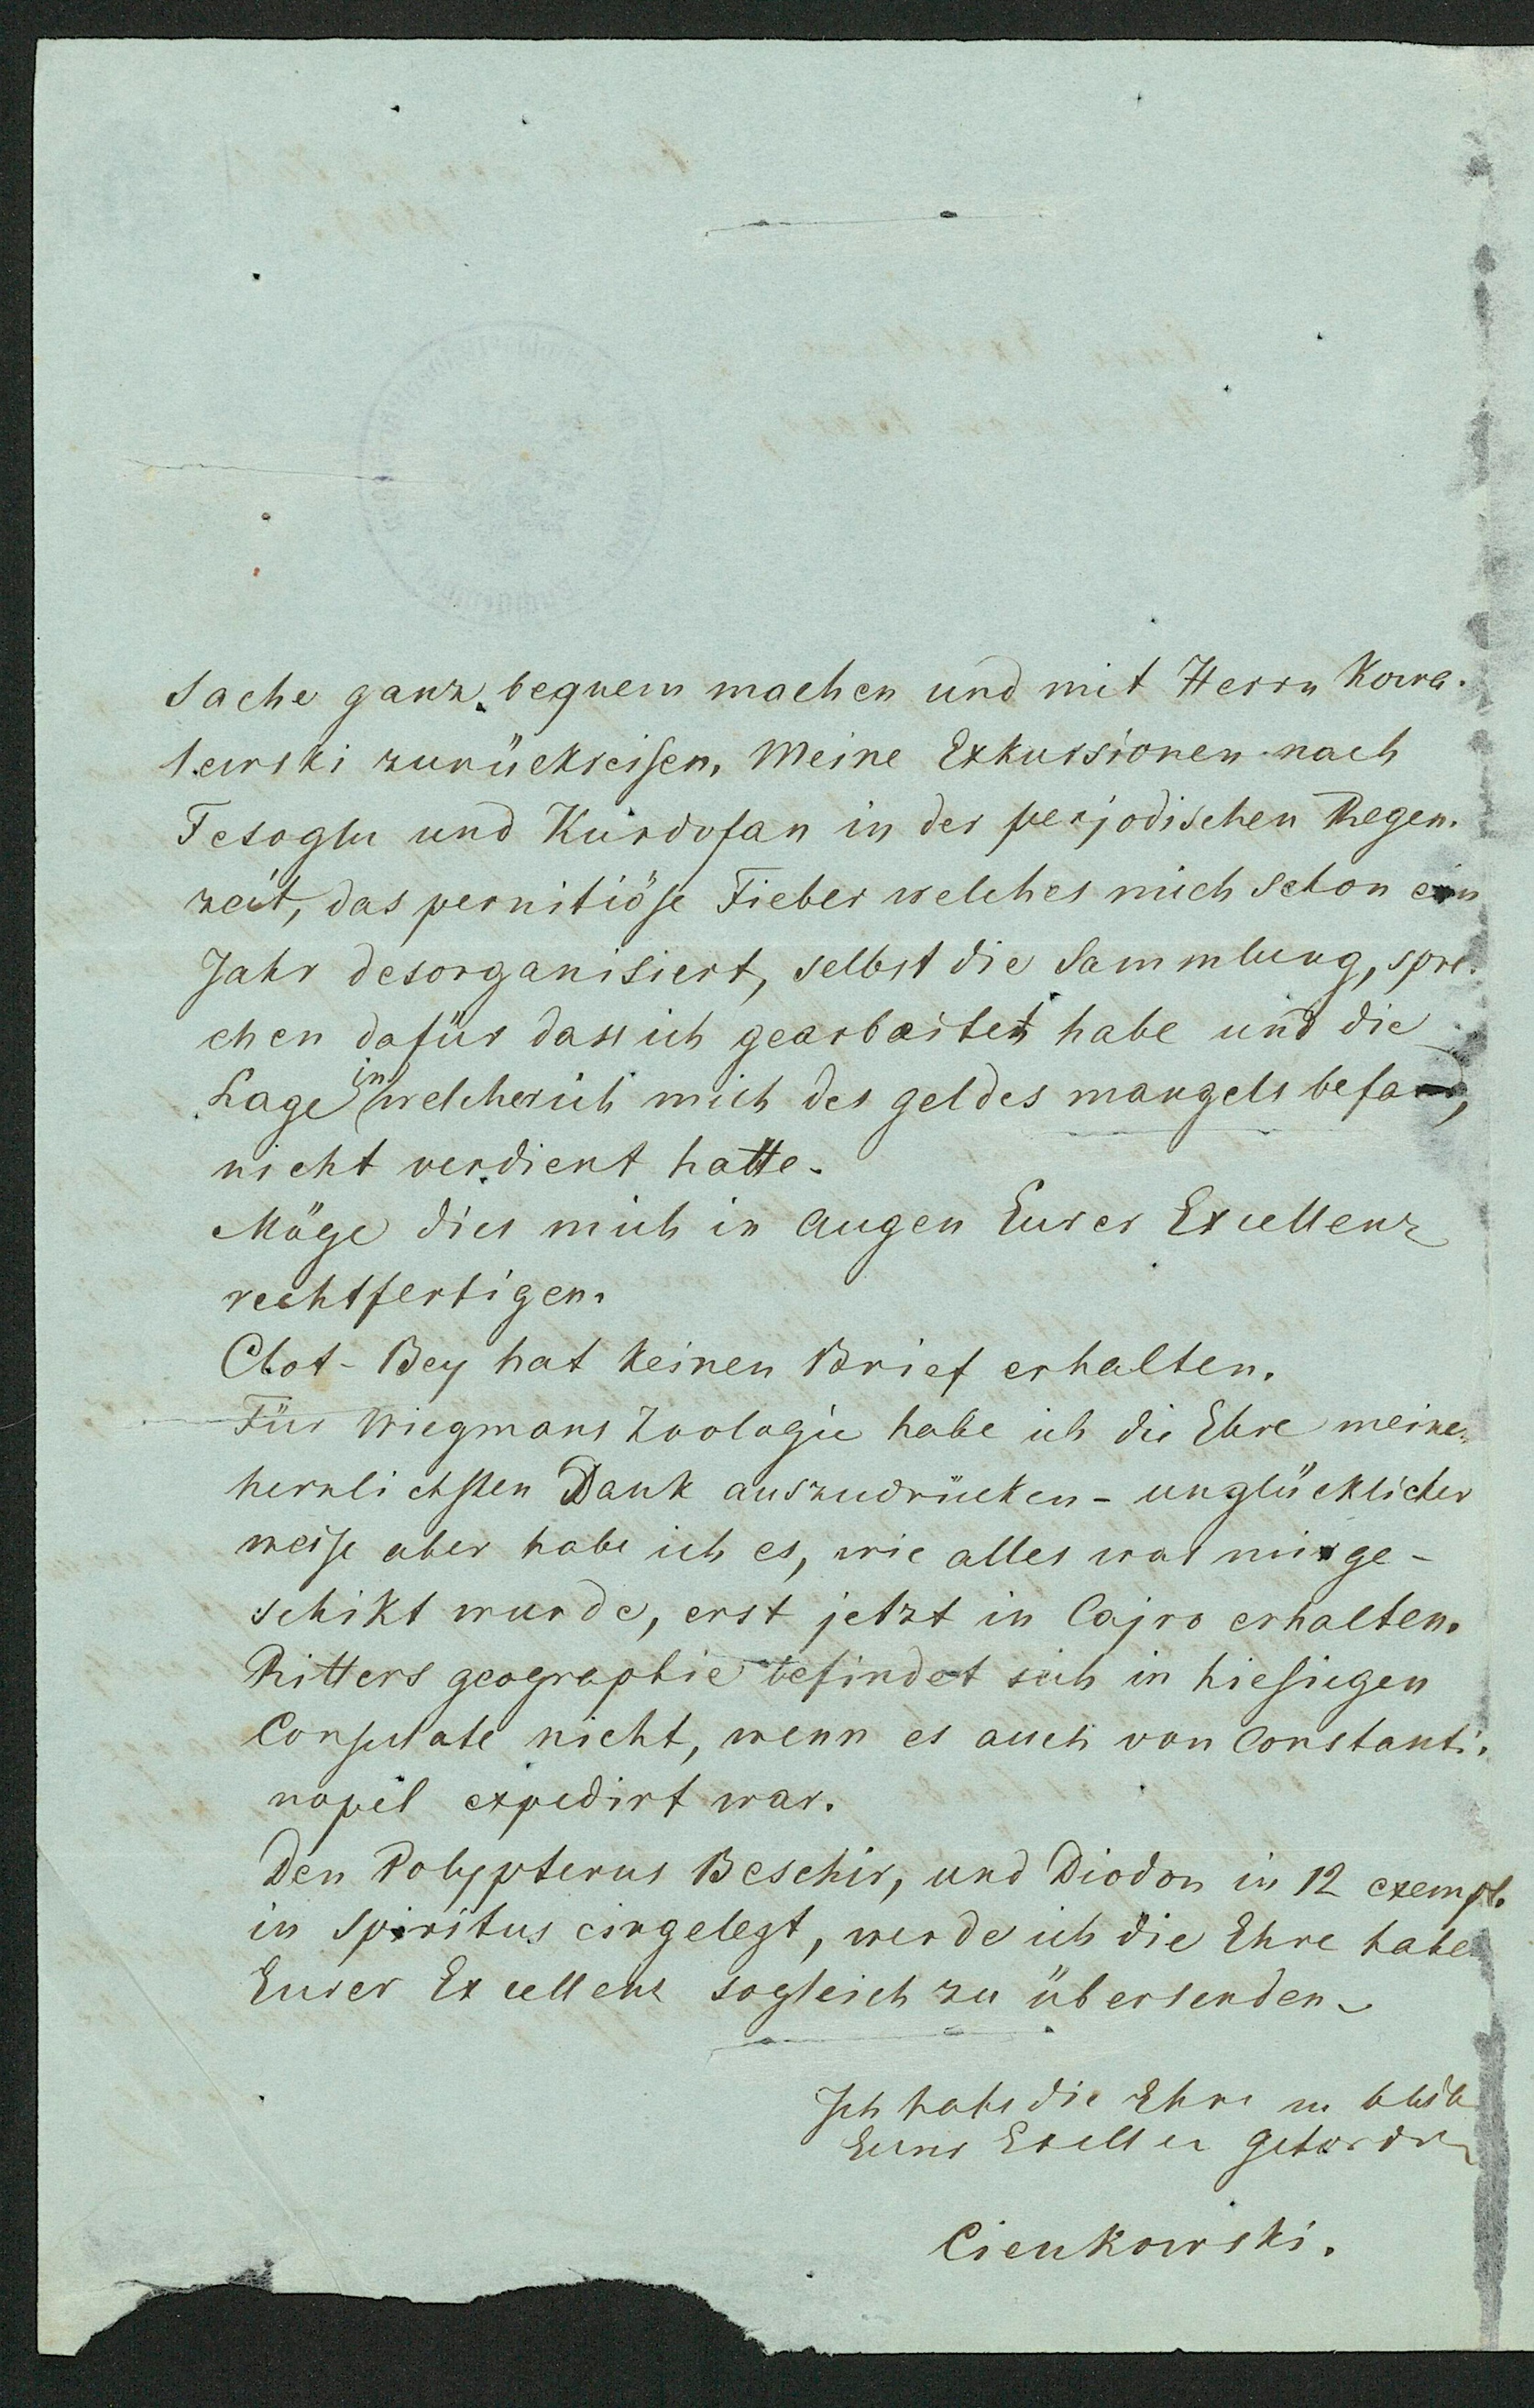 Sache ganz bequem machen und mit Herrn Kowa-
lewski zurückreisen. Meine Exkursionen nach
Fesoglu und Kurdofan in der perjodischen Regen-
zeit, das pernitiöse Fieber welches mich schon ein
Jahr desorganisiert, selbst die Sammlung, spre-
chen dafür dass ich gearbeitet habe und die
Lage in welcher ich mich des geldes mangels befand,
nicht verdient hatte.
Möge dies mich in Augen Eurer Excellenz
rechtfertigen.
Clot-Bey hat keinen Brief erhalten.
Für Wiegmans Zoologie habe ich die Ehre meinen
herzlichsten Dank auszudrücken - unglücklicher
weise aber habe ich es, wie alles was mir ge-
schikt wurde, erst jetzt in Cajro erhalten.
Ritters geographie befindet sich in hiesiegen
Consulate nicht, wenn es auch von Constanti-
nopel expedirt war.
Den Polypterus Beschir, und Diodon in 12 exempl.
in Spiritus eingelegt, werde ich die Ehre haben
Eurer Excellenz sogleich zu übersenden.
Ich habe die Ehre zu
Eurer
Cienkowski.